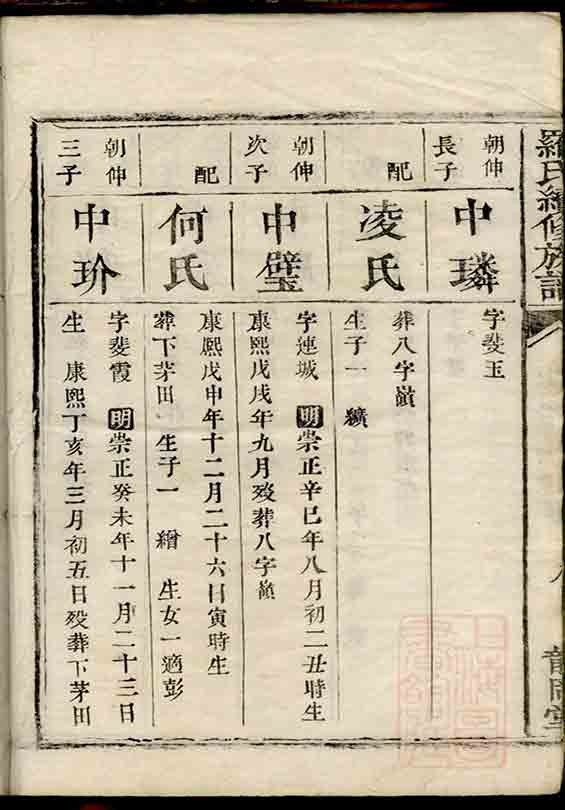 羅氏續修族譜
朝伸
長子
中璘
字斐玉
配
凌氏
葬八字嶺
生子一 纘
朝伸
次子
中璧
字連城 明崇正辛巳年八月初二丑時生
康熙戊戌年九月歿葬八字嶺
配
何氏
康熙戊申年十二月二十六日寅時生
葬下茅田 生子一 繪 生女一適彭
朝伸
三子
中玠
字斐霞 明崇正癸未年十一月二十三日
生 康熙丁亥年三月初五日歿葬下茅田